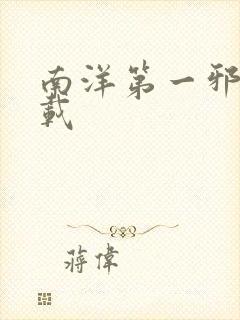 南洋第一邪
載
蔣偉